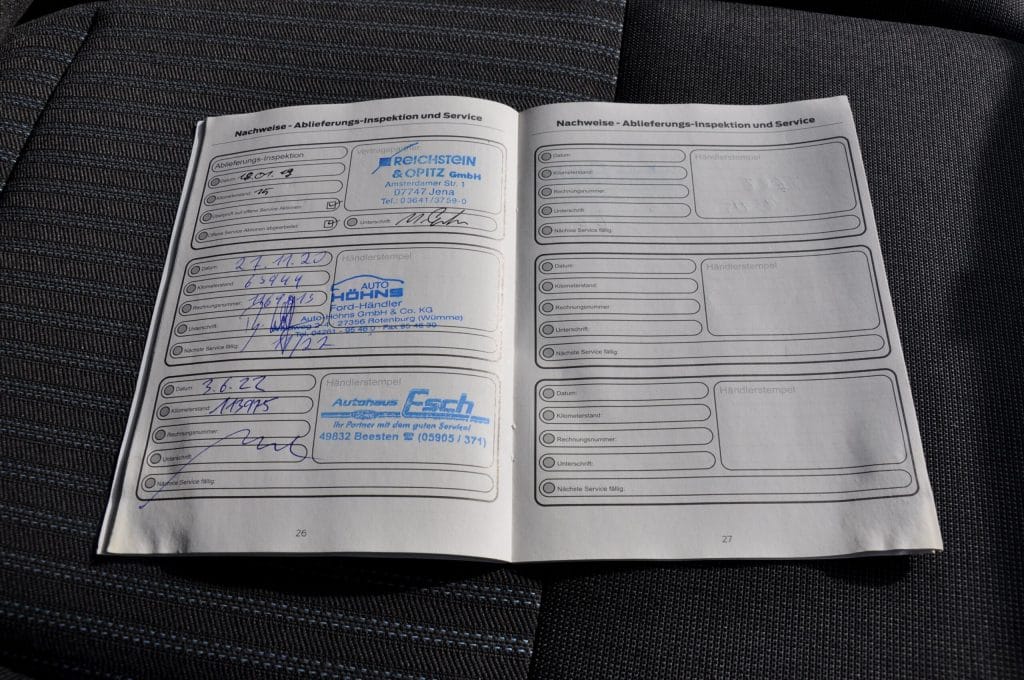 Nachweise - Ablieferungs-Inspektion und Service
Ablieferungs-Inspektion
Datum:
Kilometerstand: 15
Überprüft auf offene Service Aktionen
Offene Service Aktionen abgearbeitet
Vertragspartner
REICHSTEIN
& OPITZ GmbH
Amsterdamer Str. 1
07747 Jena
Tel.: 03641/3759-0
Unterschrift:
Datum: 27.11.20
Kilometerstand: 63944
Rechnungsnummer:
Unterschrift:
Nächste Service fällig: 11/22
Händlerstempel
AUTO
HÖHNS
Ford-Händler
Auto-Höhns GmbH & Co. KG
27356 Rotenburg (Wümme)
Tel. 04261 - 95 46 0 Fax 95 46 30
Datum: 3.6.22
Kilometerstand: 113975
Rechnungsnummer:
Unterschrift:
Nächste Service fällig:
Händlerstempel
Autohaus Esch
Ihr Partner mit dem guten Service!
49832 Beesten ☎ (05905 / 371)
26
Nachweise - Ablieferungs-Inspektion und Service
Datum:
Kilometerstand:
Rechnungsnummer:
Unterschrift:
Nächste Service fällig:
Händlerstempel
Datum:
Kilometerstand:
Rechnungsnummer:
Unterschrift:
Nächste Service fällig:
Händlerstempel
Datum:
Kilometerstand:
Rechnungsnummer:
Unterschrift:
Nächste Service fällig:
Händlerstempel
27